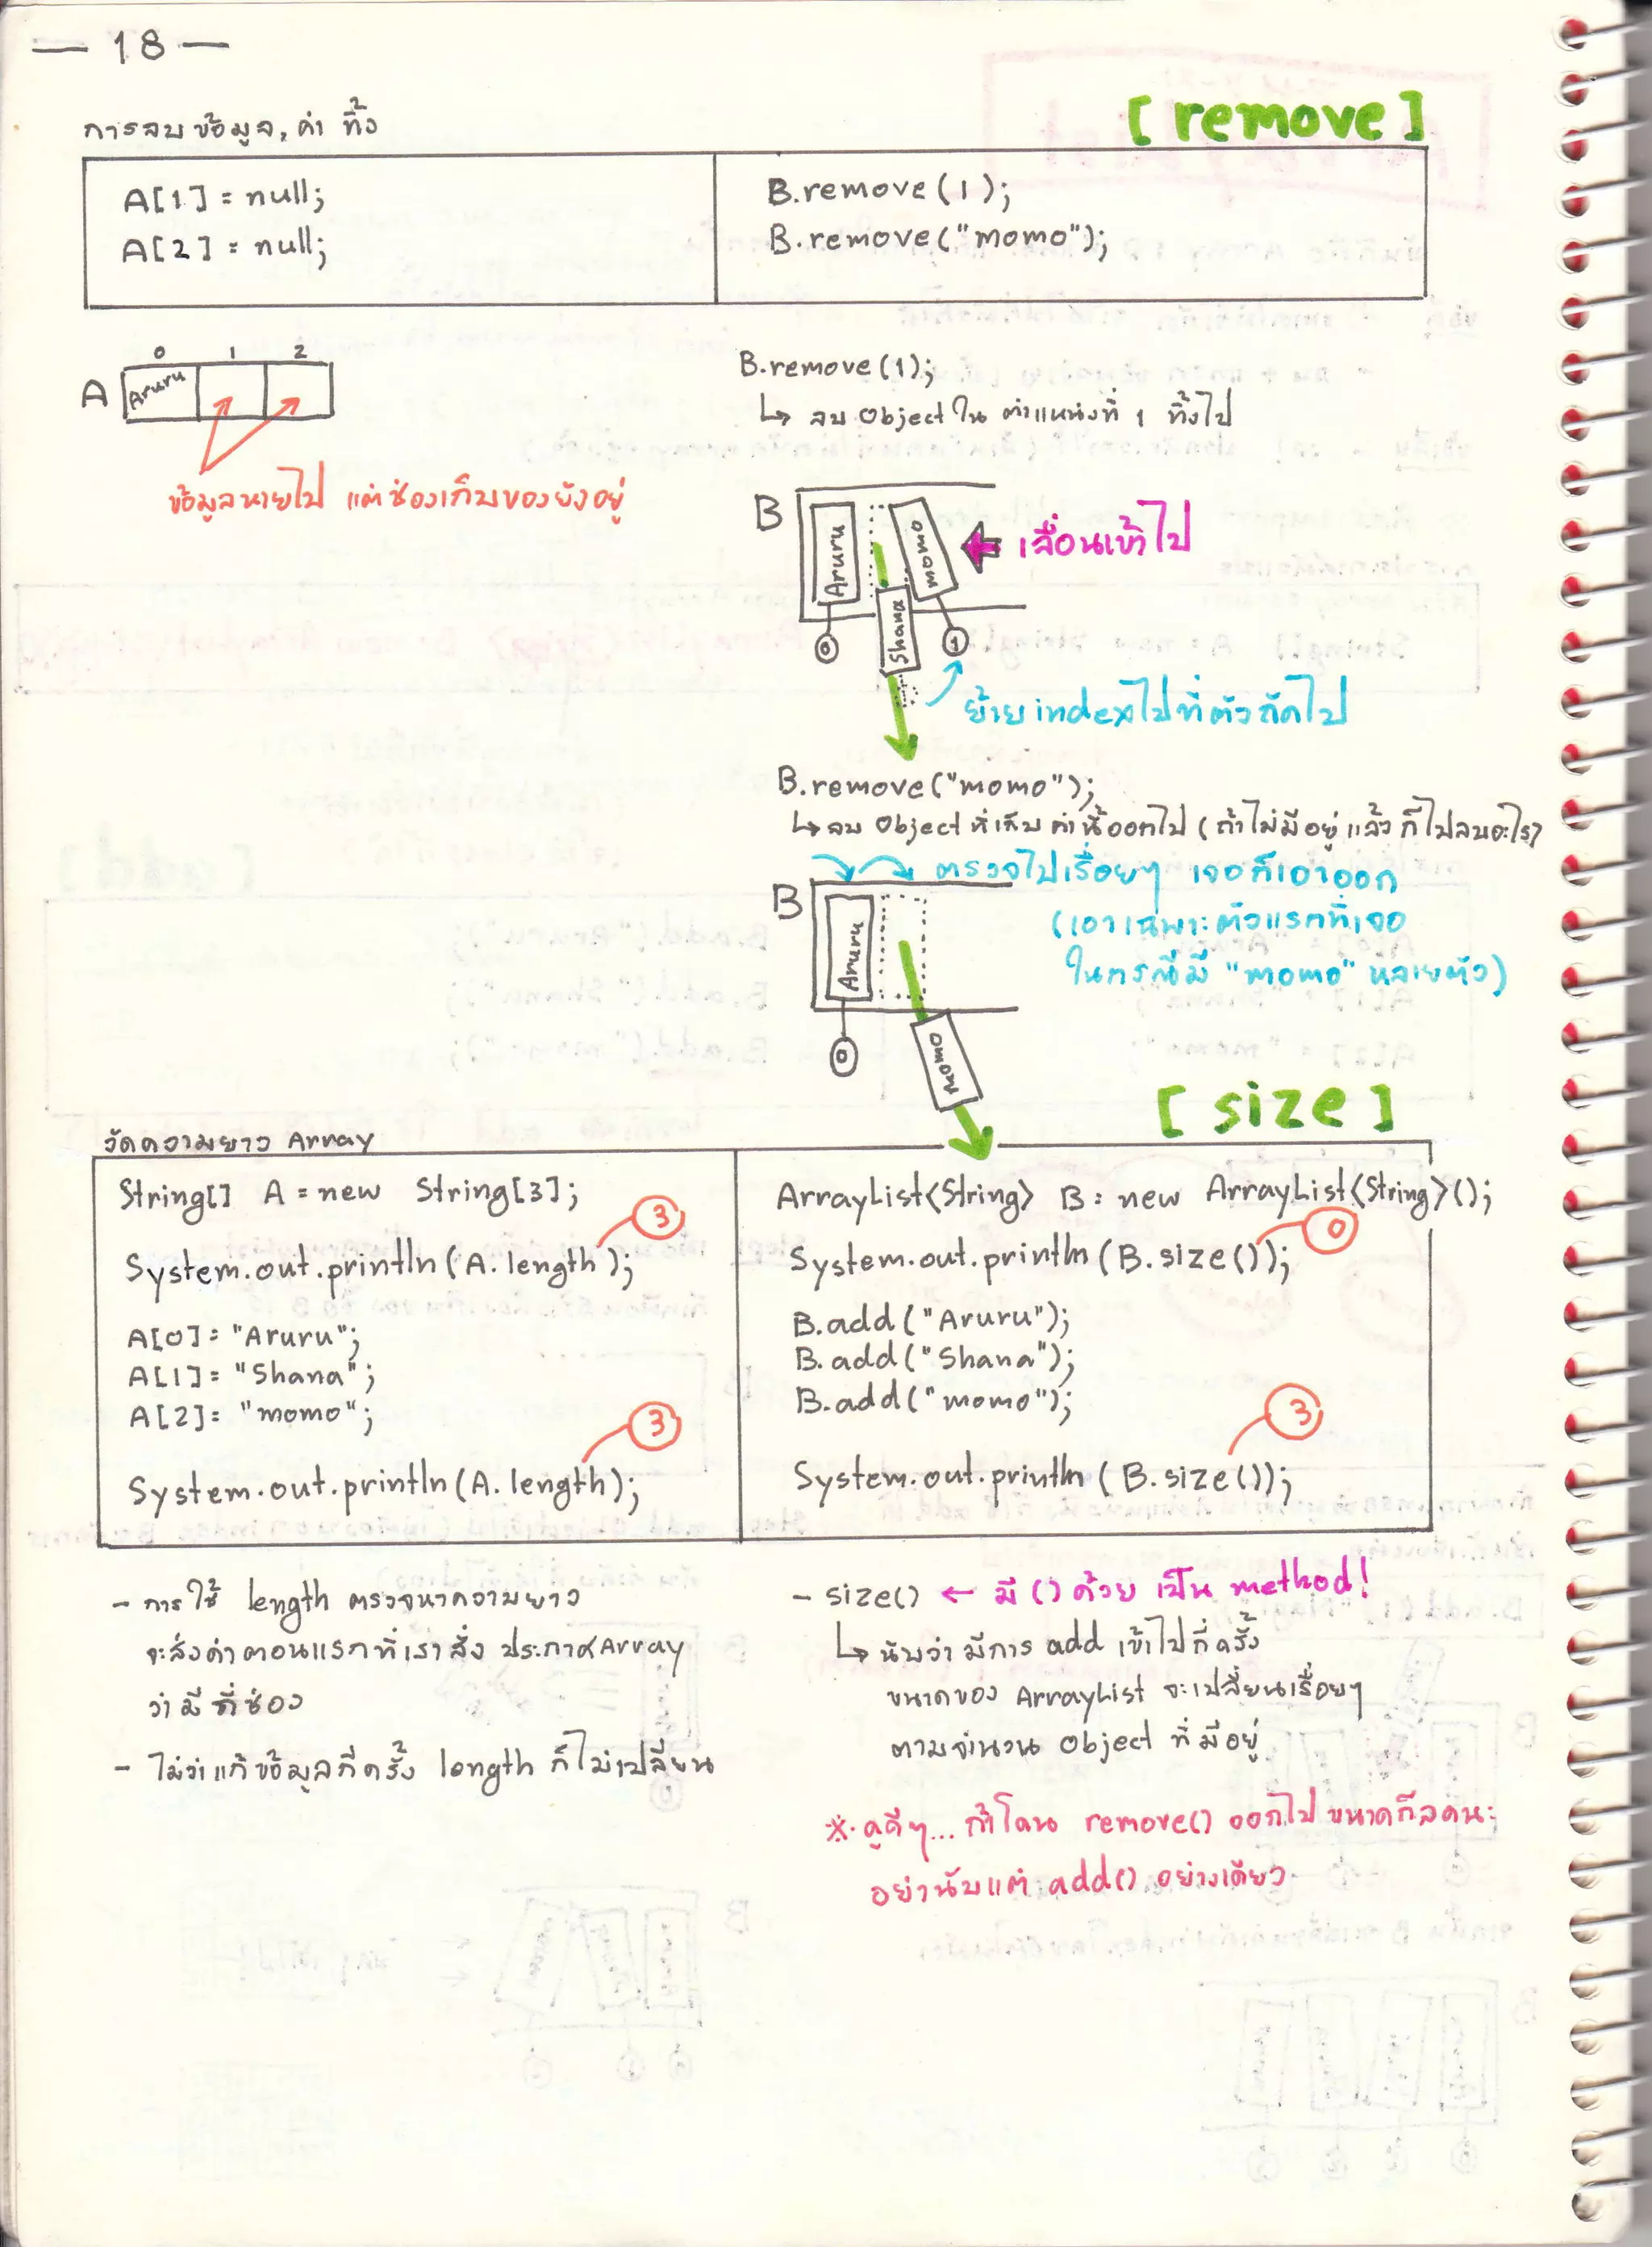 — 18 —
การลบข้อมูล, ค่า ทิ้ง
[ remove ]
A[1] = null;
A[2] = null;
B.remove(1);
B.remove("momo");
0 1 2
A Aruru
ข้อมูลหายไป แต่ช่องเก็บของยังอยู่
B.remove(1);
↳ ลบ Object ใน ตำแหน่งที่ 1 ทิ้งไป
B
Aruru
Shana
momo
← เลื่อนเข้าไป
0
1
ย้าย index ไปที่ตัวถัดไป
B.remove("momo");
↳ ลบ Object ที่เก็บ ค่านี้ออกไป (ถ้าไม่มีอยู่ แล้ว ก็ไม่ลบอะไร)
ตรวจไปเรื่อยๆ เจอก็เอาออก
(เอาเฉพาะตัวแรกที่เจอ
ในกรณีมี "momo" หลายตัว)
B
Aruru
0
momo
[ size ]
วัดความยาว Array
String[] A = new String[3];
3
System.out.println(A.length);
A[0] = "Aruru";
A[1] = "Shana";
A[2] = "momo";
3
System.out.println(A.length);
ArrayList<String> B = new ArrayList<String>();
0
System.out.println(B.size());
B.add("Aruru");
B.add("Shana");
B.add("momo");
3
System.out.println(B.size());
- การใช้ length ตรวจหาความยาว
จะส่งค่าตอนแรกที่เราสั่ง ประกาศArray
ว่ามี กี่ช่อง
- ไม่ว่าแก้ข้อมูลกี่ครั้ง length ก็ไม่เปลี่ยน
- size() ← มี () ด้วย เป็น method!
↳ นับว่ามีการ add เข้าไปกี่ครั้ง
ขนาดของ ArrayList จะเปลี่ยนเรื่อยๆ
ตามจำนวน Object ที่มีอยู่
※ ดูดีๆ... ถ้าโดน remove() ออกไป ขนาดก็ลดนะ
อย่านับแต่ add() อย่างเดียว